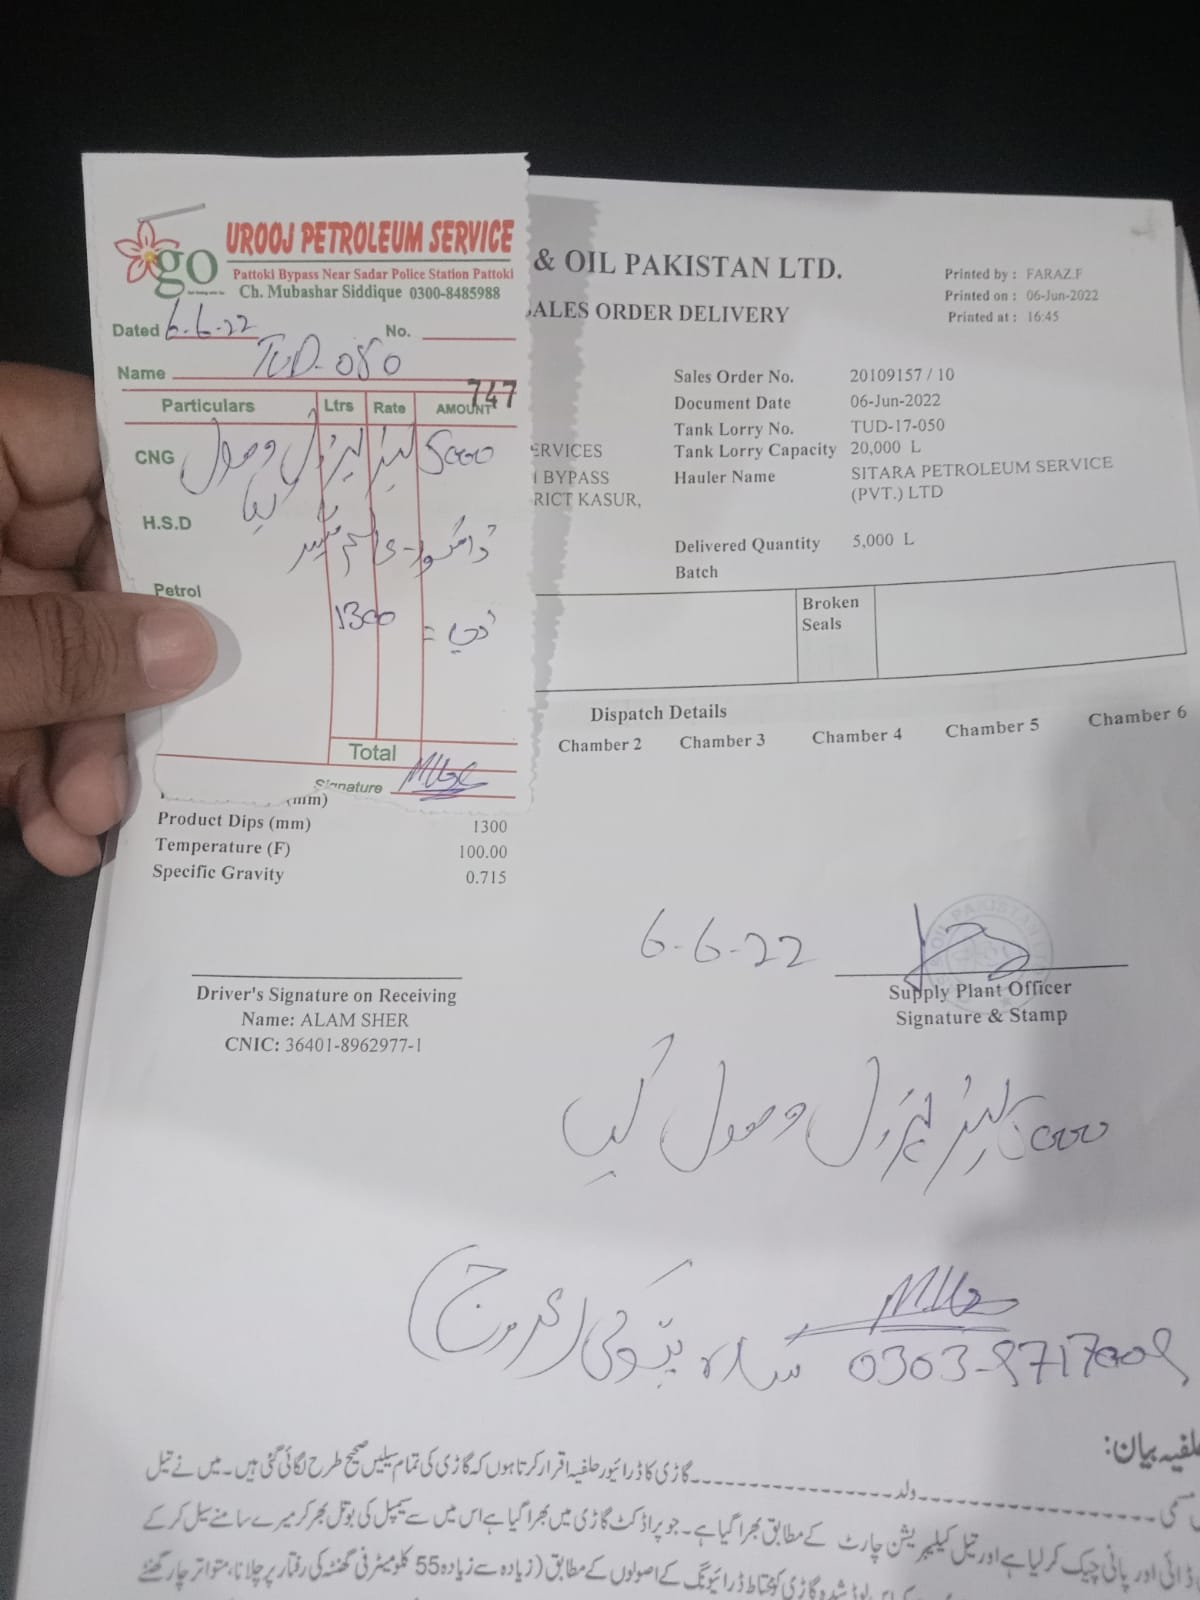 go
UROOJ PETROLEUM SERVICE
Pattoki Bypass Near Sadar Police Station Pattoki
Ch. Mubashar Siddique 0300-8485988
Dated 6-6-22 No.
Name TUD-080
747
Particulars Ltrs Rate AMOUNT
CNG
5000 لیٹر پٹرول وصول
کیا
H.S.D
Petrol
1300
Total
Signature
& OIL PAKISTAN LTD.
SALES ORDER DELIVERY
Printed by : FARAZ.F
Printed on : 06-Jun-2022
Printed at : 16:45
Sales Order No. 20109157 / 10
Document Date 06-Jun-2022
Tank Lorry No. TUD-17-050
ERVICES Tank Lorry Capacity 20,000 L
BYPASS Hauler Name SITARA PETROLEUM SERVICE
RICT KASUR, (PVT.) LTD
Delivered Quantity 5,000 L
Batch
Broken
Seals
Dispatch Details
Chamber 2 Chamber 3 Chamber 4 Chamber 5 Chamber 6
(mm)
Product Dips (mm) 1300
Temperature (F) 100.00
Specific Gravity 0.715
6-6-22
Driver's Signature on Receiving
Name: ALAM SHER
CNIC: 36401-8962977-1
Supply Plant Officer
Signature & Stamp
5000 لیٹر پٹرول وصول کیا
ستارہ پتوکی (عروج)
بیان:
ولد گاڑی کا ڈرائیور حلفیہ اقرار کرتا ہوں کہ گاڑی کی تمام سیلیں صحیح طرح لگائی گئی ہیں۔ میں نے تیل
ڈائی اور پانی چیک کر لیا ہے اور تیل کیلیبریشن چارٹ کے مطابق بھرا گیا ہے۔ جو پراڈکٹ گاڑی میں بھرا گیا ہے اس میں سے سیمپل کی بوتل بھر کر میرے سامنے سیل کر کے
لوڈ شدہ گاڑی کو محتاط ڈرائیونگ کے اصولوں کے مطابق (زیادہ سے زیادہ 55 کلومیٹر فی گھنٹہ کی رفتار پر چلانا، متواتر چار گھنٹے